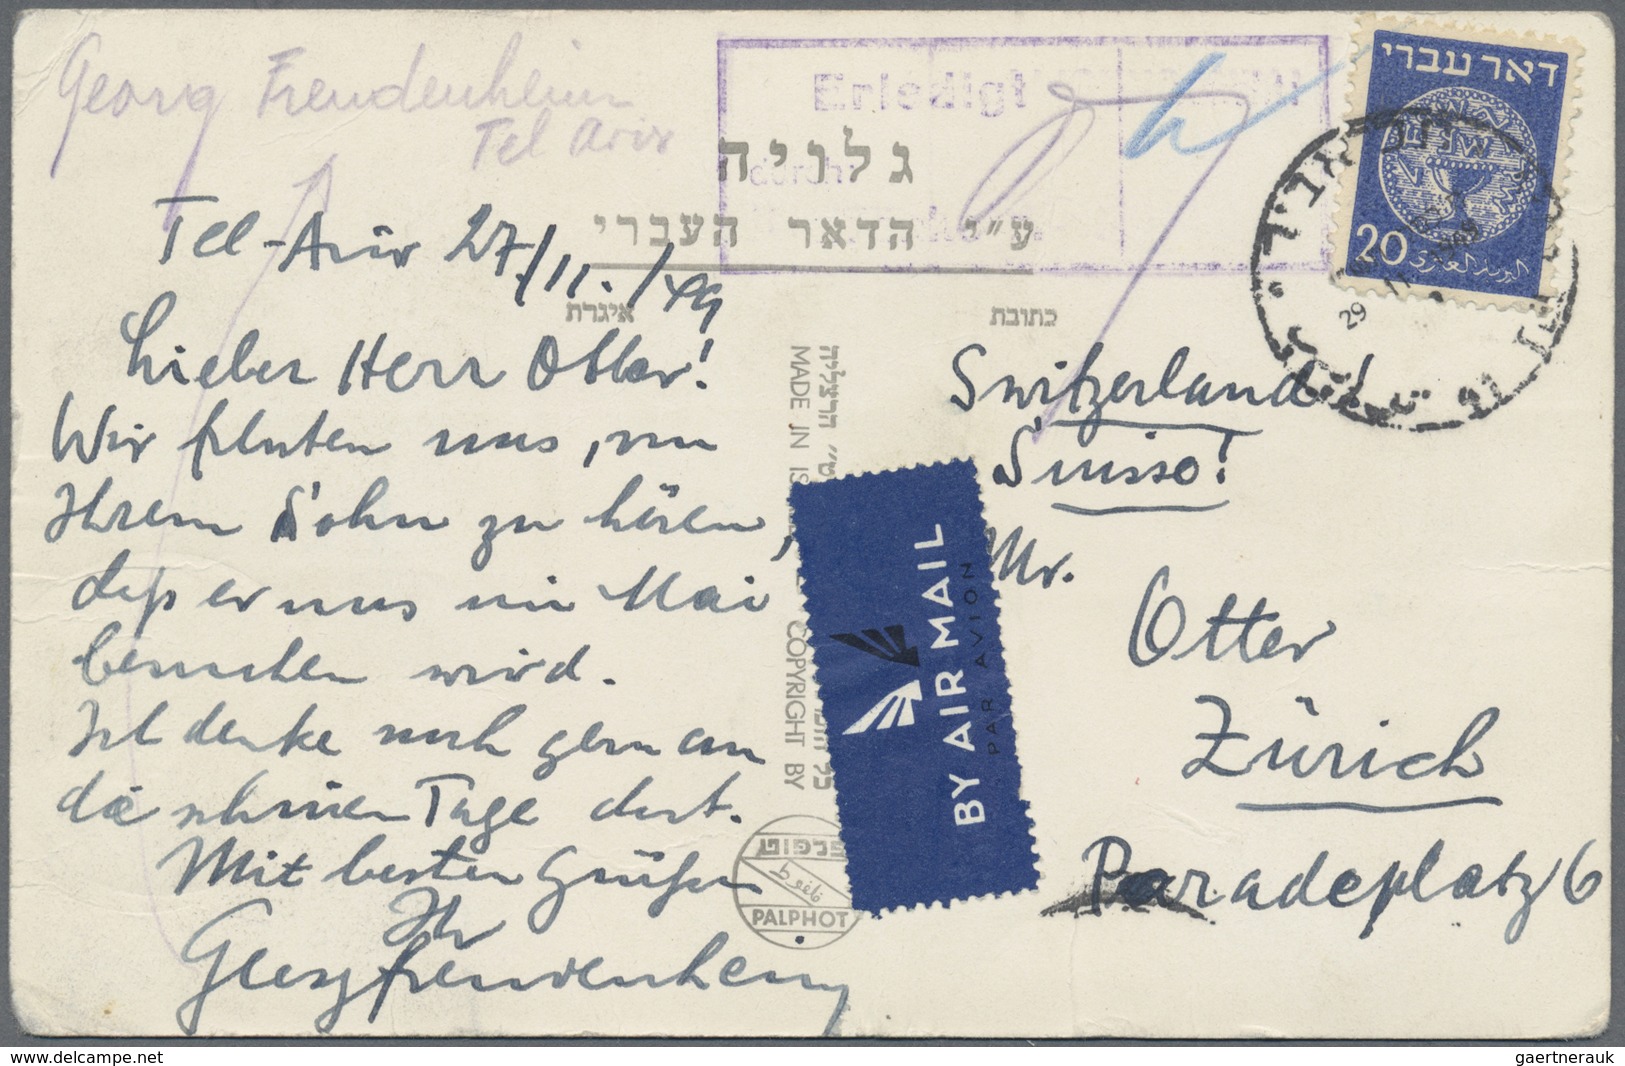 Georg Freudenheim
Tel Aviv
Erledigt
durch:
גלויה
ע״י הדאר העברי
איגרת
כתובת
דאר עברי
20
البريد العبري
29
Tel-Aviv 27./11./49
Lieber Herr Otter!
Wir freuten uns, von
Ihrem Sohn zu hören,
daß er uns im Mai
besuchen wird.
Ich denke noch gern an
die schönen Tage dort.
Mit besten Grüßen
Ihr
Georg Freudenheim
MADE IN IS
COPYRIGHT BY
פלפוט
PALPHOT
BY AIR MAIL
PAR AVION
Switzerland!
Suisse!
Mr.
Otter
Zürich
Paradeplatz 6
www.delcampe.net
gaertnerauk